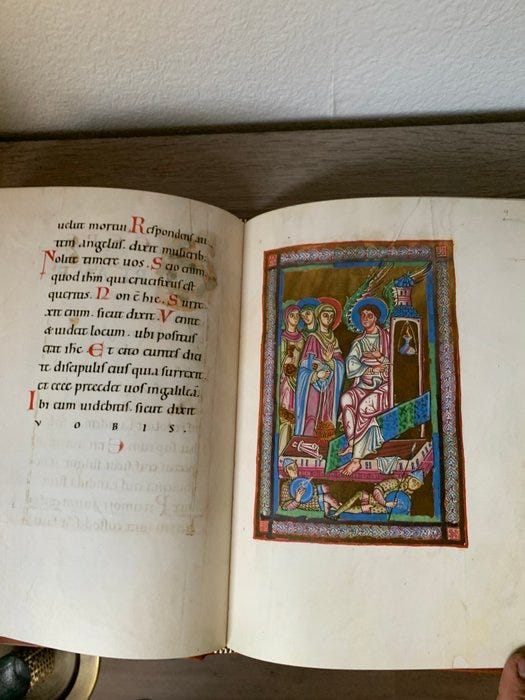 uelut mortui. Respondens au-
tem angelus. dixit mulierib;
Nolite timere uos. Scio enim.
quod ihm qui crucifixus est
queritis. Non ē hic. Surre-
xit enim. sicut dixit. Venite
& uidete locum. ubi positus
erat ihc. Et cito euntes dici
te discipulis eius quia surrexit.
et ecce precedet uos ingalileā.
Ibi eum uidebitis. sicut dixit
VOBIS.